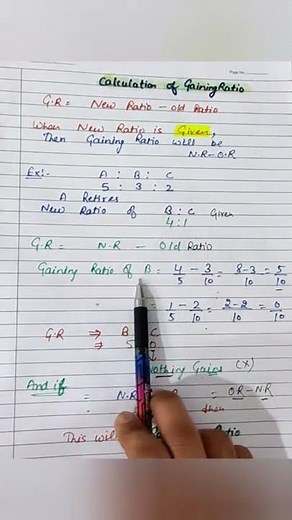 Page No.
Calculation of Gaining Ratio
G.R = New Ratio - old Ratio
When New Ratio is Given,
Then Gaining Ratio will be
N.R-O.R
Ex:- A : B : C
5 : 3 : 2
A Retires
New Ratio of B : C Given
4 : 1
G.R = N.R - Old Ratio
Gaining Ratio of B = 4/5 - 3/10 = 8-3/10 = 5/10
1/5 - 2/10 = 2-2/10 = 0/10
G.R ⇒ B C
⇒ 5 0
↓
Nothing Gains (X)
And if = N.R = OR-N.R
then
This will Ratio